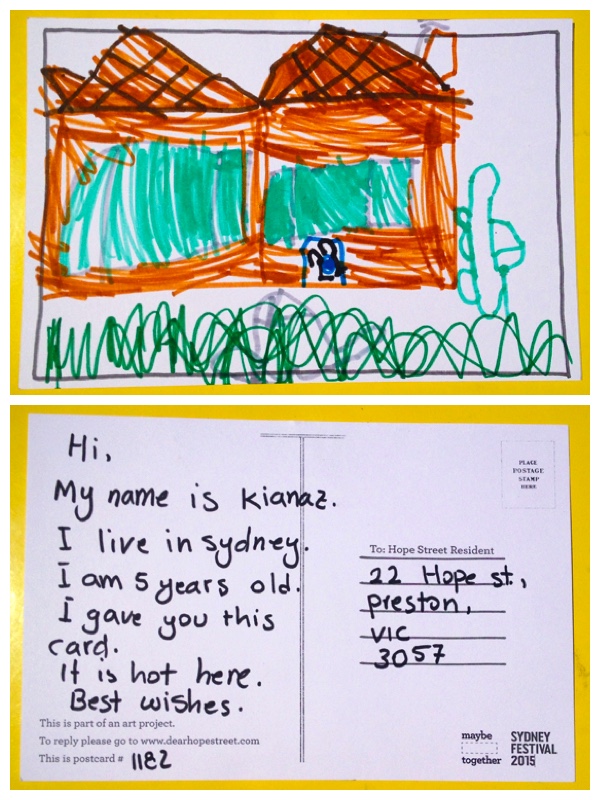 22
Hi,
My name is Kianaz.
I live in Sydney.
I am 5 years old.
I gave you this
card.
It is hot here.
Best wishes.
This is part of an art project.
To reply please go to www.dearhopestreet.com
This is postcard # 1182
PLACE
POSTAGE
STAMP
HERE
To: Hope Street Resident
22 Hope st,
preston,
VIC
3057
maybe
together
SYDNEY
FESTIVAL
2015